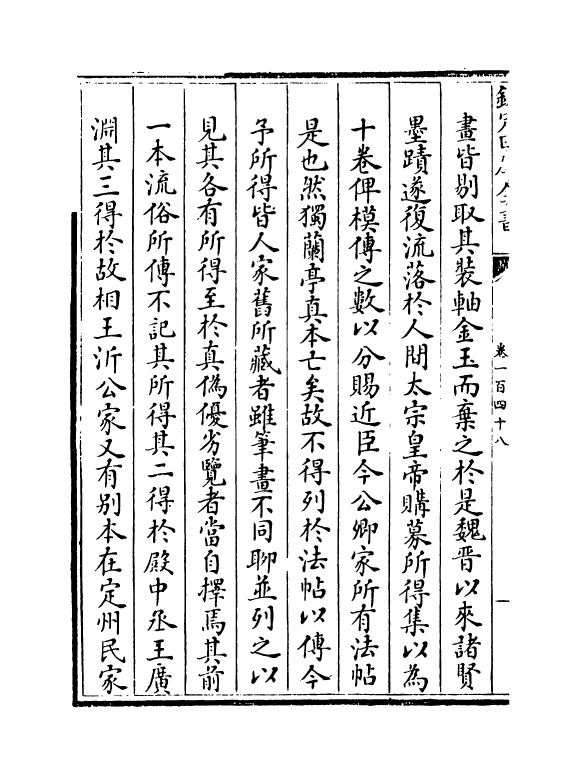 卷一百四十八
一
畫皆剔取其裝軸金玉而棄之於是魏晉以來諸賢
墨蹟遂復流落於人間太宗皇帝購募所得集以為
十卷俾模傳之數以分賜近臣今公卿家所有法帖
是也然獨蘭亭真本亡矣故不得列於法帖以傳今
予所得皆人家舊所藏者雖筆畫不同聊並列之以
見其各有所得至於真偽優劣覽者當自擇焉其前
一本流俗所傳不記其所得其二得於殿中丞王廣
淵其三得於故相王沂公家又有别本在定州民家